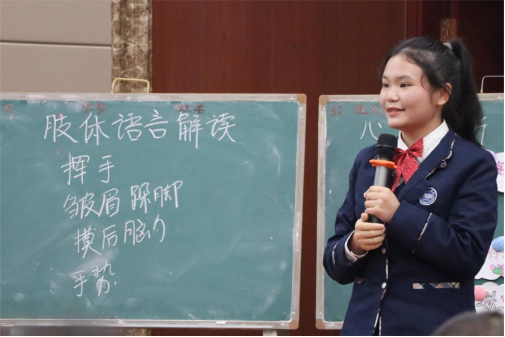 肢体语言解读
挥手
皱眉 跺脚
摸后脑勺
手势
心